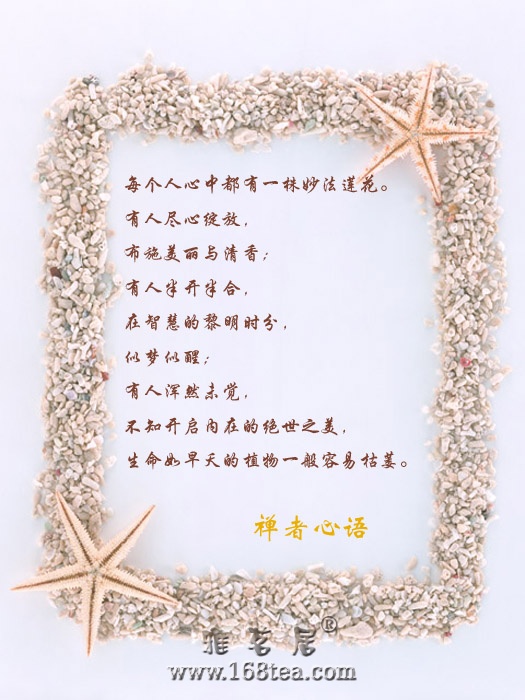 每个人心中都有一株妙法莲花。
有人尽心绽放，
布施美丽与清香；
有人半开半合，
在智慧的黎明时分，
似梦似醒；
有人浑然未觉，
不知开启内在的绝世之美，
生命如旱天的植物一般容易枯萎。
禅者心语
雅茗居®
www.168tea.com